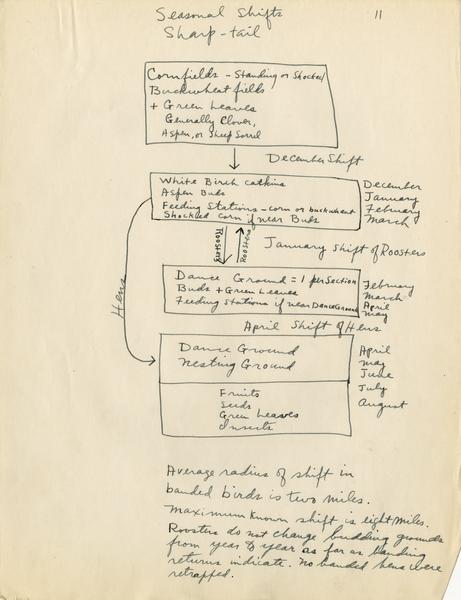 Seasonal Shifts
11
Sharp-tail
Cornfields - Standing or Shocked
Buckwheat fields
+ Green Leaves
Generally Clover,
Aspen, or Sheep Sorrel
December Shift
White Birch catkins
Aspen Buds
Feeding Stations - corn or buckwheat
Shocked corn if near Buds
December
January
February
March
Roosters
Roosters
January Shift of Roosters
Hens
Dance Ground = 1 per Section
Buds + Green Leaves
Feeding Stations if near Dance Ground
February
March
April
May
April Shift of Hens
Dance Ground
Nesting Ground
April
May
June
July
August
Fruits
Seeds
Green Leaves
Insects
Average radius of shift in
banded birds is two miles.
Maximum known shift is eight miles.
Roosters do not change budding grounds
from year to year as far as banding
returns indicate. No banded hens were
retrapped.